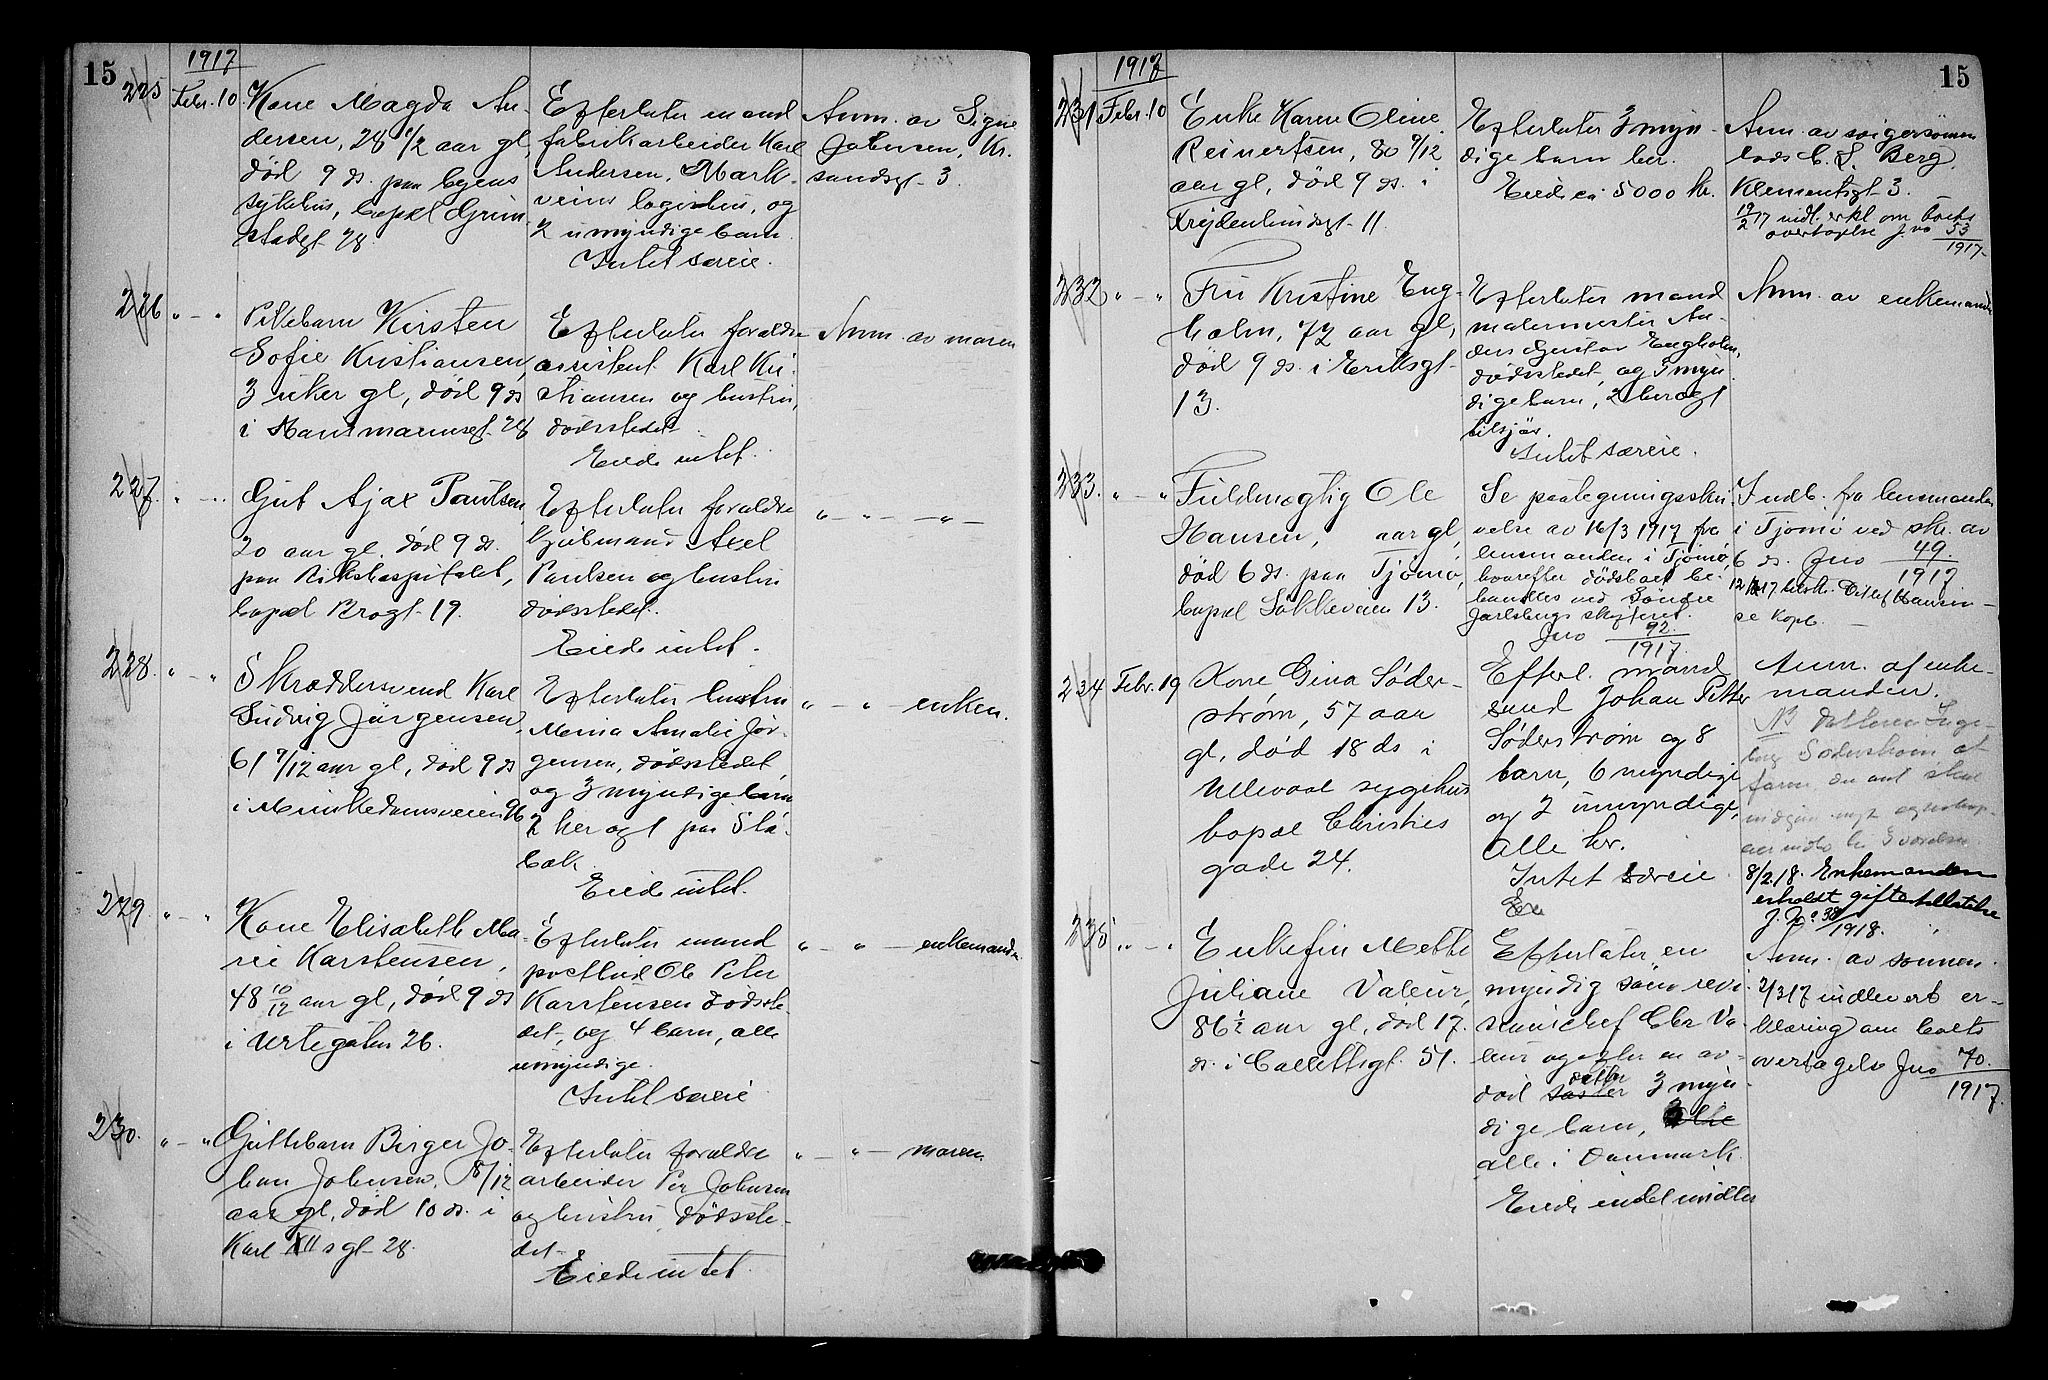 15
1917
225
Febr. 10
Kone Magda An-
dersen, 28 1/2 aar gl,
død 9 ds. paa byens
sykehus, bopæl Grim-
stadgt 28.
Efterlater mand
fabrikarbeider Karl
Andersen, Mark-
veiens logishus, og
2 umyndige barn.
Intet særeie.
Anm. av Signe
Johnsen, Kr.
sandsgt. 3.
226 " - "
Pikebarn Kirsten
Sofie Kristiansen,
3 uker gl, død 9 ds
i Hausmannsgt. 28
Efterlater forældre
assistent Karl Kri-
stiansen og hustru,
dødsstedet.
Eiede intet.
Anm. av moren
227. " - "
Gut Ajax Paulsen,
20 aar gl. død 9 ds.
paa Rikshospitalet,
bopæl Brogt. 19.
Efterlater forældre
Axel
Paulsen og hustru
dødsstedet.
Eiede intet.
" - " - " -
228. " - "
Skræddersvend Karl
Ludvig Jørgensen,
61 9/12 aar gl, død 9 ds
i Munkedamsveien 96
Efterlater hustru
Amalie Jør-
gensen, dødsstedet,
og 3 myndige barn
2 her og 1 paa Sla-
bæk
Eiede intet.
" - " - enken.
229. " - "
Kone Elisabeth Ma-
rie Karstensen,
48 10/12 aar gl, død 9 ds
i Urtegaten 26.
Efterlater mand
postbud Ole Peter
Karstensen dødsste-
det, og 4 barn, alle
umyndige.
Intet særeie
" - " - enkemanden
230. " - "
Guttebarn Birger Jo-
han Johnsen, 8/12
aar gl, død 10 ds. i
Karl XII s gt. 28.
Efterlater forældre
arbeider Per Johnsen
og hustru, dødsste-
det.
Eiede intet.
" - " - moren.
15
1917
231 Febr. 10
Enke Karen Oline
Reinertsen, 80 9/12
aar gl, død 9 ds. i
Frydenlundsgt. 11.
Efterlater 3 myn-
dige barn her.
Eied ca 5000 kr.
Anm. av svigersønnen
lods C. L. Berg,
Klemontsgt 3.
19/2 17 indl. erkl om boets
overtagelse J. no 53
1917.
232 " - "
Fru Kristine Eng-
holm, 72 aar gl,
død 9 ds. i Eriksgt.
13.
Efterlater mand
malermester An-
ders Gustav Engholm,
dødsstedet, og 3 myn-
dige barn, 2 her og 1
tilsjøs.
Intet særeie.
Anm. av enkemanden
233. " - "
Fuldmægtig Ole
Hansen, aar gl,
død 6 ds. paa Tjømø,
bopæl Sökkeveien 13.
Se paategningsskri-
velse av 16/3 1917 fra
lensmanden i Tjømø,
hvorefter dødsboet be-
handles ved Søndre
Jarlsbergs skifteret.
Jno 92.
1917.
Indb. fra lensmanden
i Tjømø ved skr. av
6 ds. Jno 49.
1917
17 tilskr. Ditlef Hansen -
se Kopb. -
234 Febr. 19
Kone Gina Søder-
strøm, 57 aar
gl, død 18 ds i
Ullevaal sygehus
bopæl Christies
gade 24.
Efterl. mand
smed Johan Petter
Søderstrøm og 8
barn, 6 myndige
og 2 umyndige,
alle her.
Intet særeie
Anm. af enke-
manden.
NB datteren Inge-
borg Søderstrøm at
faren
8/2.18. Enkemanden
erholdt giftetilladelse
J. Jno 38/1918.
235 " - "
Enkefru Mette
Juliane Valeur,
86 1/2 aar gl, død 17.
ds. i Collettsgt. 51.
Efterlater en
myndig søn revi-
sionschef Chr Va-
leur og efter en av-
død søster datter 3 myn-
dige barn, alle
alle i Danmark.
Eiede intet midler
Anm. av sønnen.
2/3 17 indlevert er-
klæring om boets
overtagelse Jno 70.
1917.